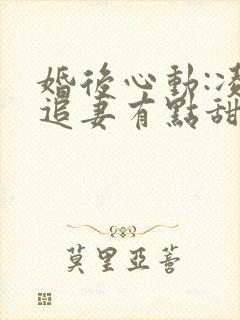 婚後心動:凌
追妻有點甜
莫里亞蒂